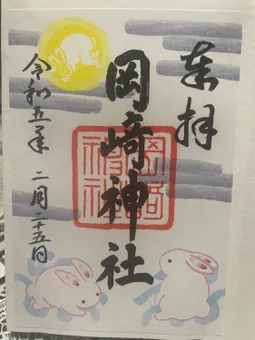 奉拝
岡崎神社
岡崎
神社
令和五年 二月二十五日